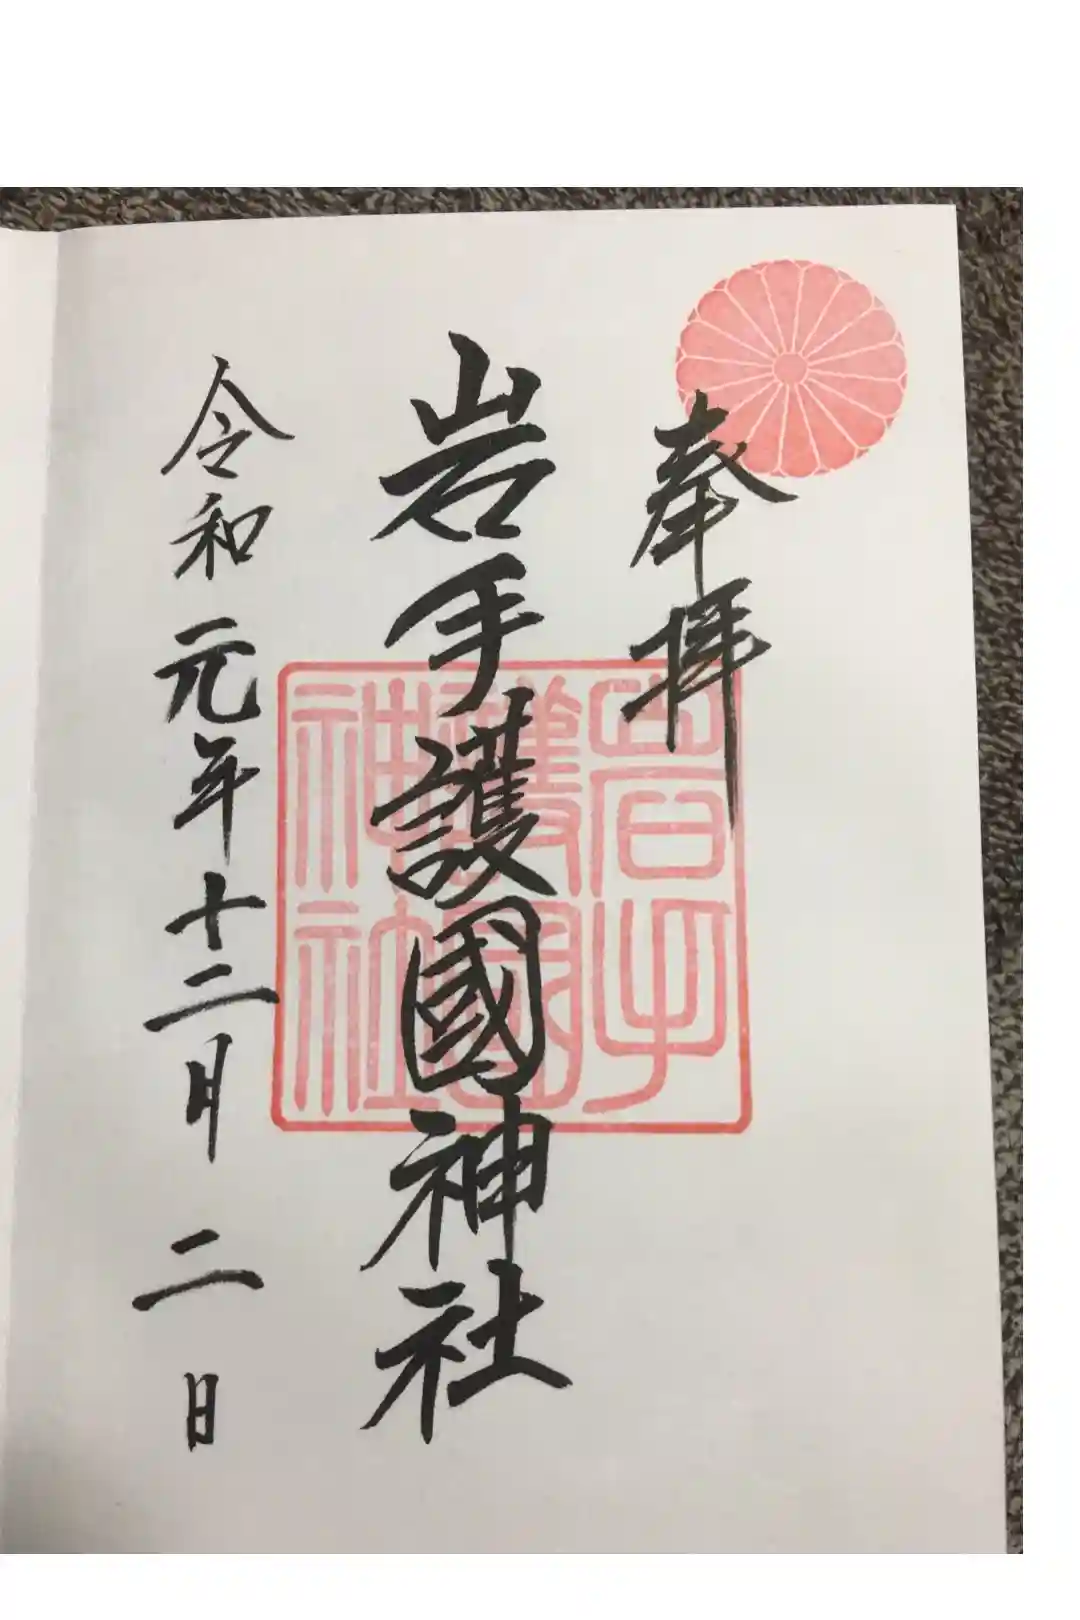 奉拝
岩手護國神社
令和元年十二月二日
岩手
護國
神社